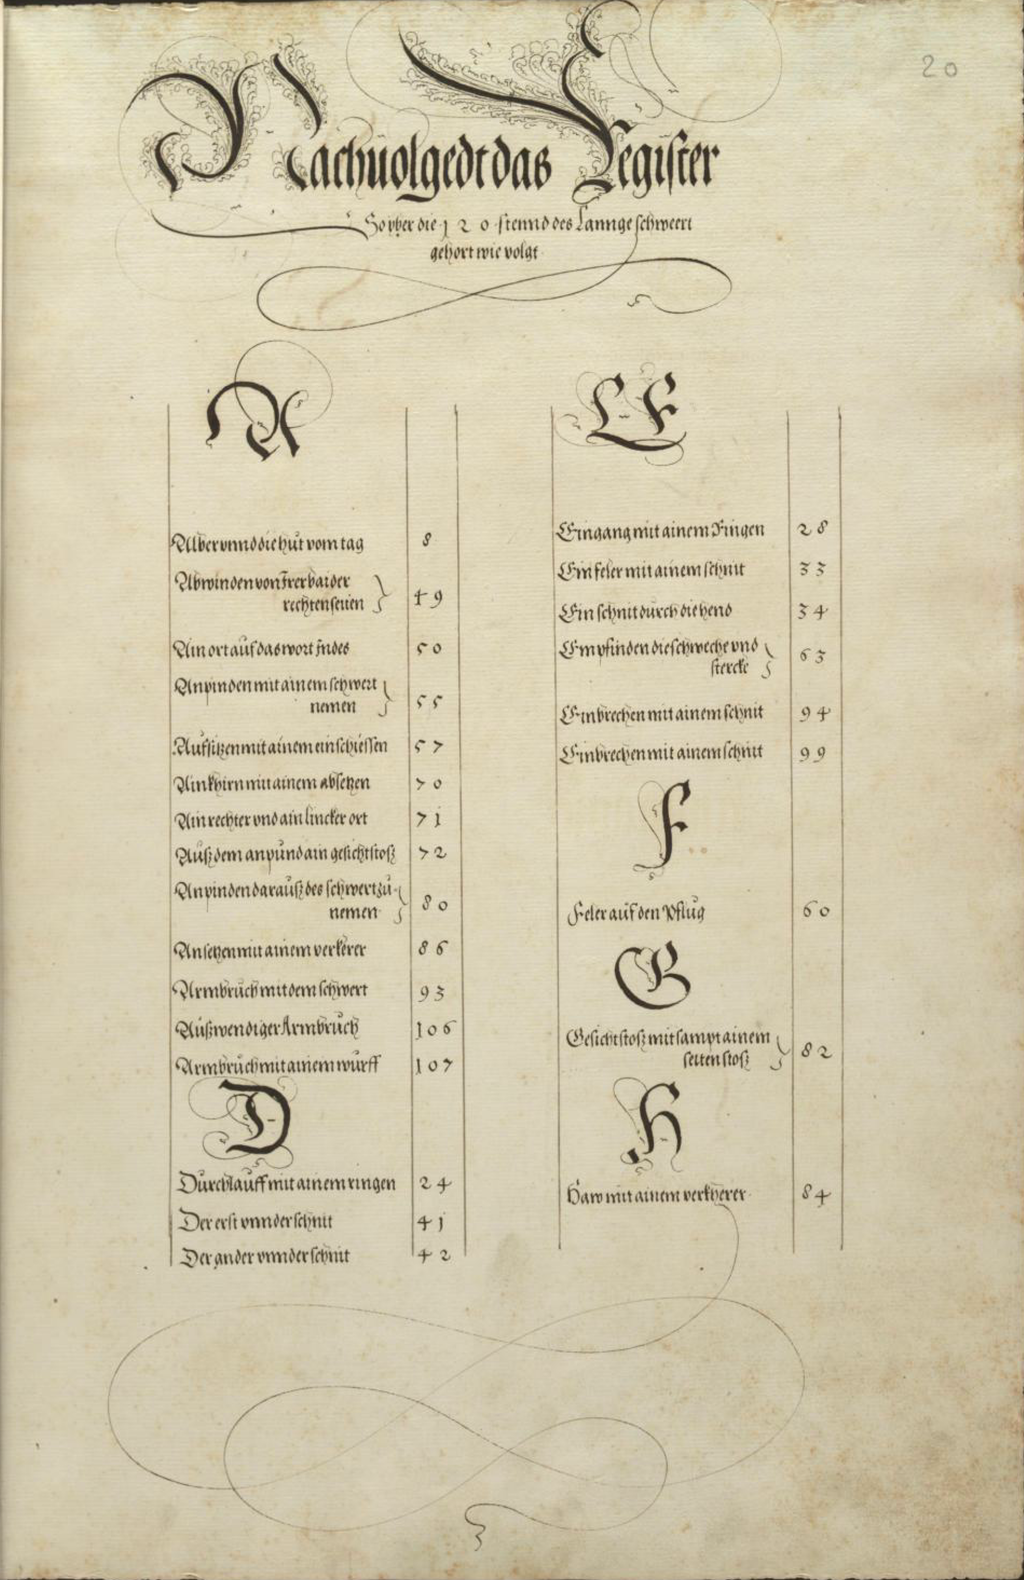 20
Nachuolgedt das Register
So vber die 120 stennd des Lannge schweert
gehort wie volgt
A
Alber vnnd die hut vom tag 8
Abwinden von Irer baider
rechten seiten 49
Ain ort auf das wort Indes 50
Anpinden mit ainem schwert
nemen 55
Aufsitzen mit ainem einschiessen 57
Ain khirn mit ainem absetzen 70
Ain rechter vnd ain lincker ort 71
Auß dem anpund ain gesichtstoß 72
Anpinden darauß des schwert zu-
nemen 80
Ansetzen mit ainem verkerer 86
Armbruch mit dem schwert 93
Außwendiger Armbruch 106
Armbruch mit ainem wurff 107
D
Durchlauff mit ainem ringen 24
Der erst vnnder schnit 41
Der ander vnnder schnit 42
E
Eingang mit ainem Ringen 28
Ein feler mit ainem schnit 33
Ein schnit durch die hend 34
Empfinden die schweche vnd
stercke 63
Einbrechen mit ainem schnit 94
Einbrechen mit ainem schnit 99
F
Feler auf den Pflug 60
G
Gesichtstoß mit sampt ainem
seiten stoß 82
H
Haw mit ainem verkherer 84